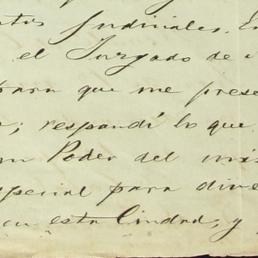 Judiciales. En
el Juzgado de
para que me prese
; respondí lo que
un Poder del mis
special para dive
en esta Ciudad, y